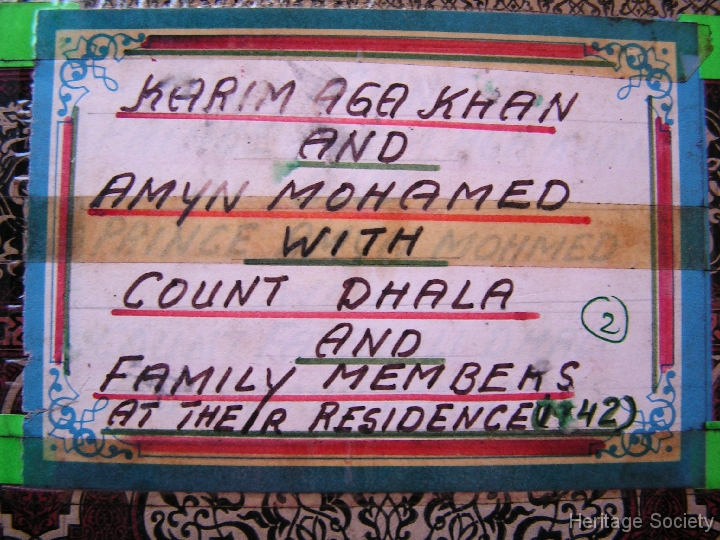 KARIM AGA KHAN
AND
AMYN MOHAMED
PRINCE MOHMED
WITH
COUNT DHALA
2
AND
FAMILY MEMBERS
AT THEIR RESIDENCE (1942)
Heritage Society